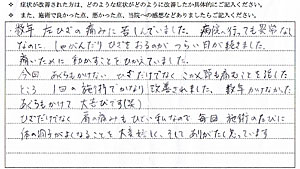 ※ 症状が改善された方は、どのような症状がどのように改善したか具体的にご記入ください。
※ また、施術で良かった点、悪かった点、当院への感想などありましたらご記入ください。
数年 左ひざの痛みに苦しんでいました。病院へ行っても異常なし
なのに、しゃがんだり ひざをおるのが つらい日が続きました。
痛いために 動かすことをひかえていました。
今回 あぐらもかけない ひざだけでなく こかん節も痛むことを話した
ところ 1回の施術でかなり 改善されました。数年かけなかった
あぐらもかけて 大喜びです(笑)
ひざだけでなく 肩の痛みもひどい私なので 毎回 施術のたびに
体の調子がよくなることを 大喜びし、そして ありがたく思っています